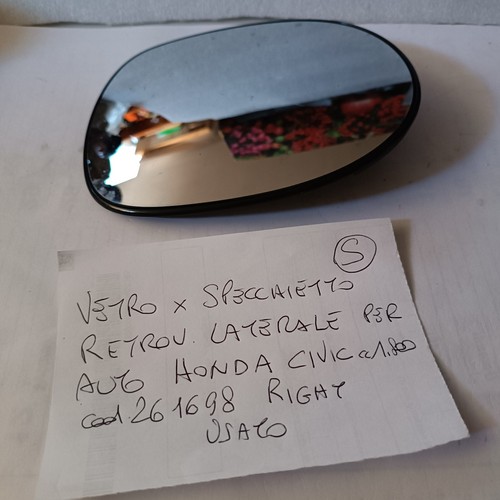 S
VETRO x SPECCHIETTO
RETROV. LATERALE PER
AUTO HONDA CIVIC
cod. 261698 RIGHT
USATO